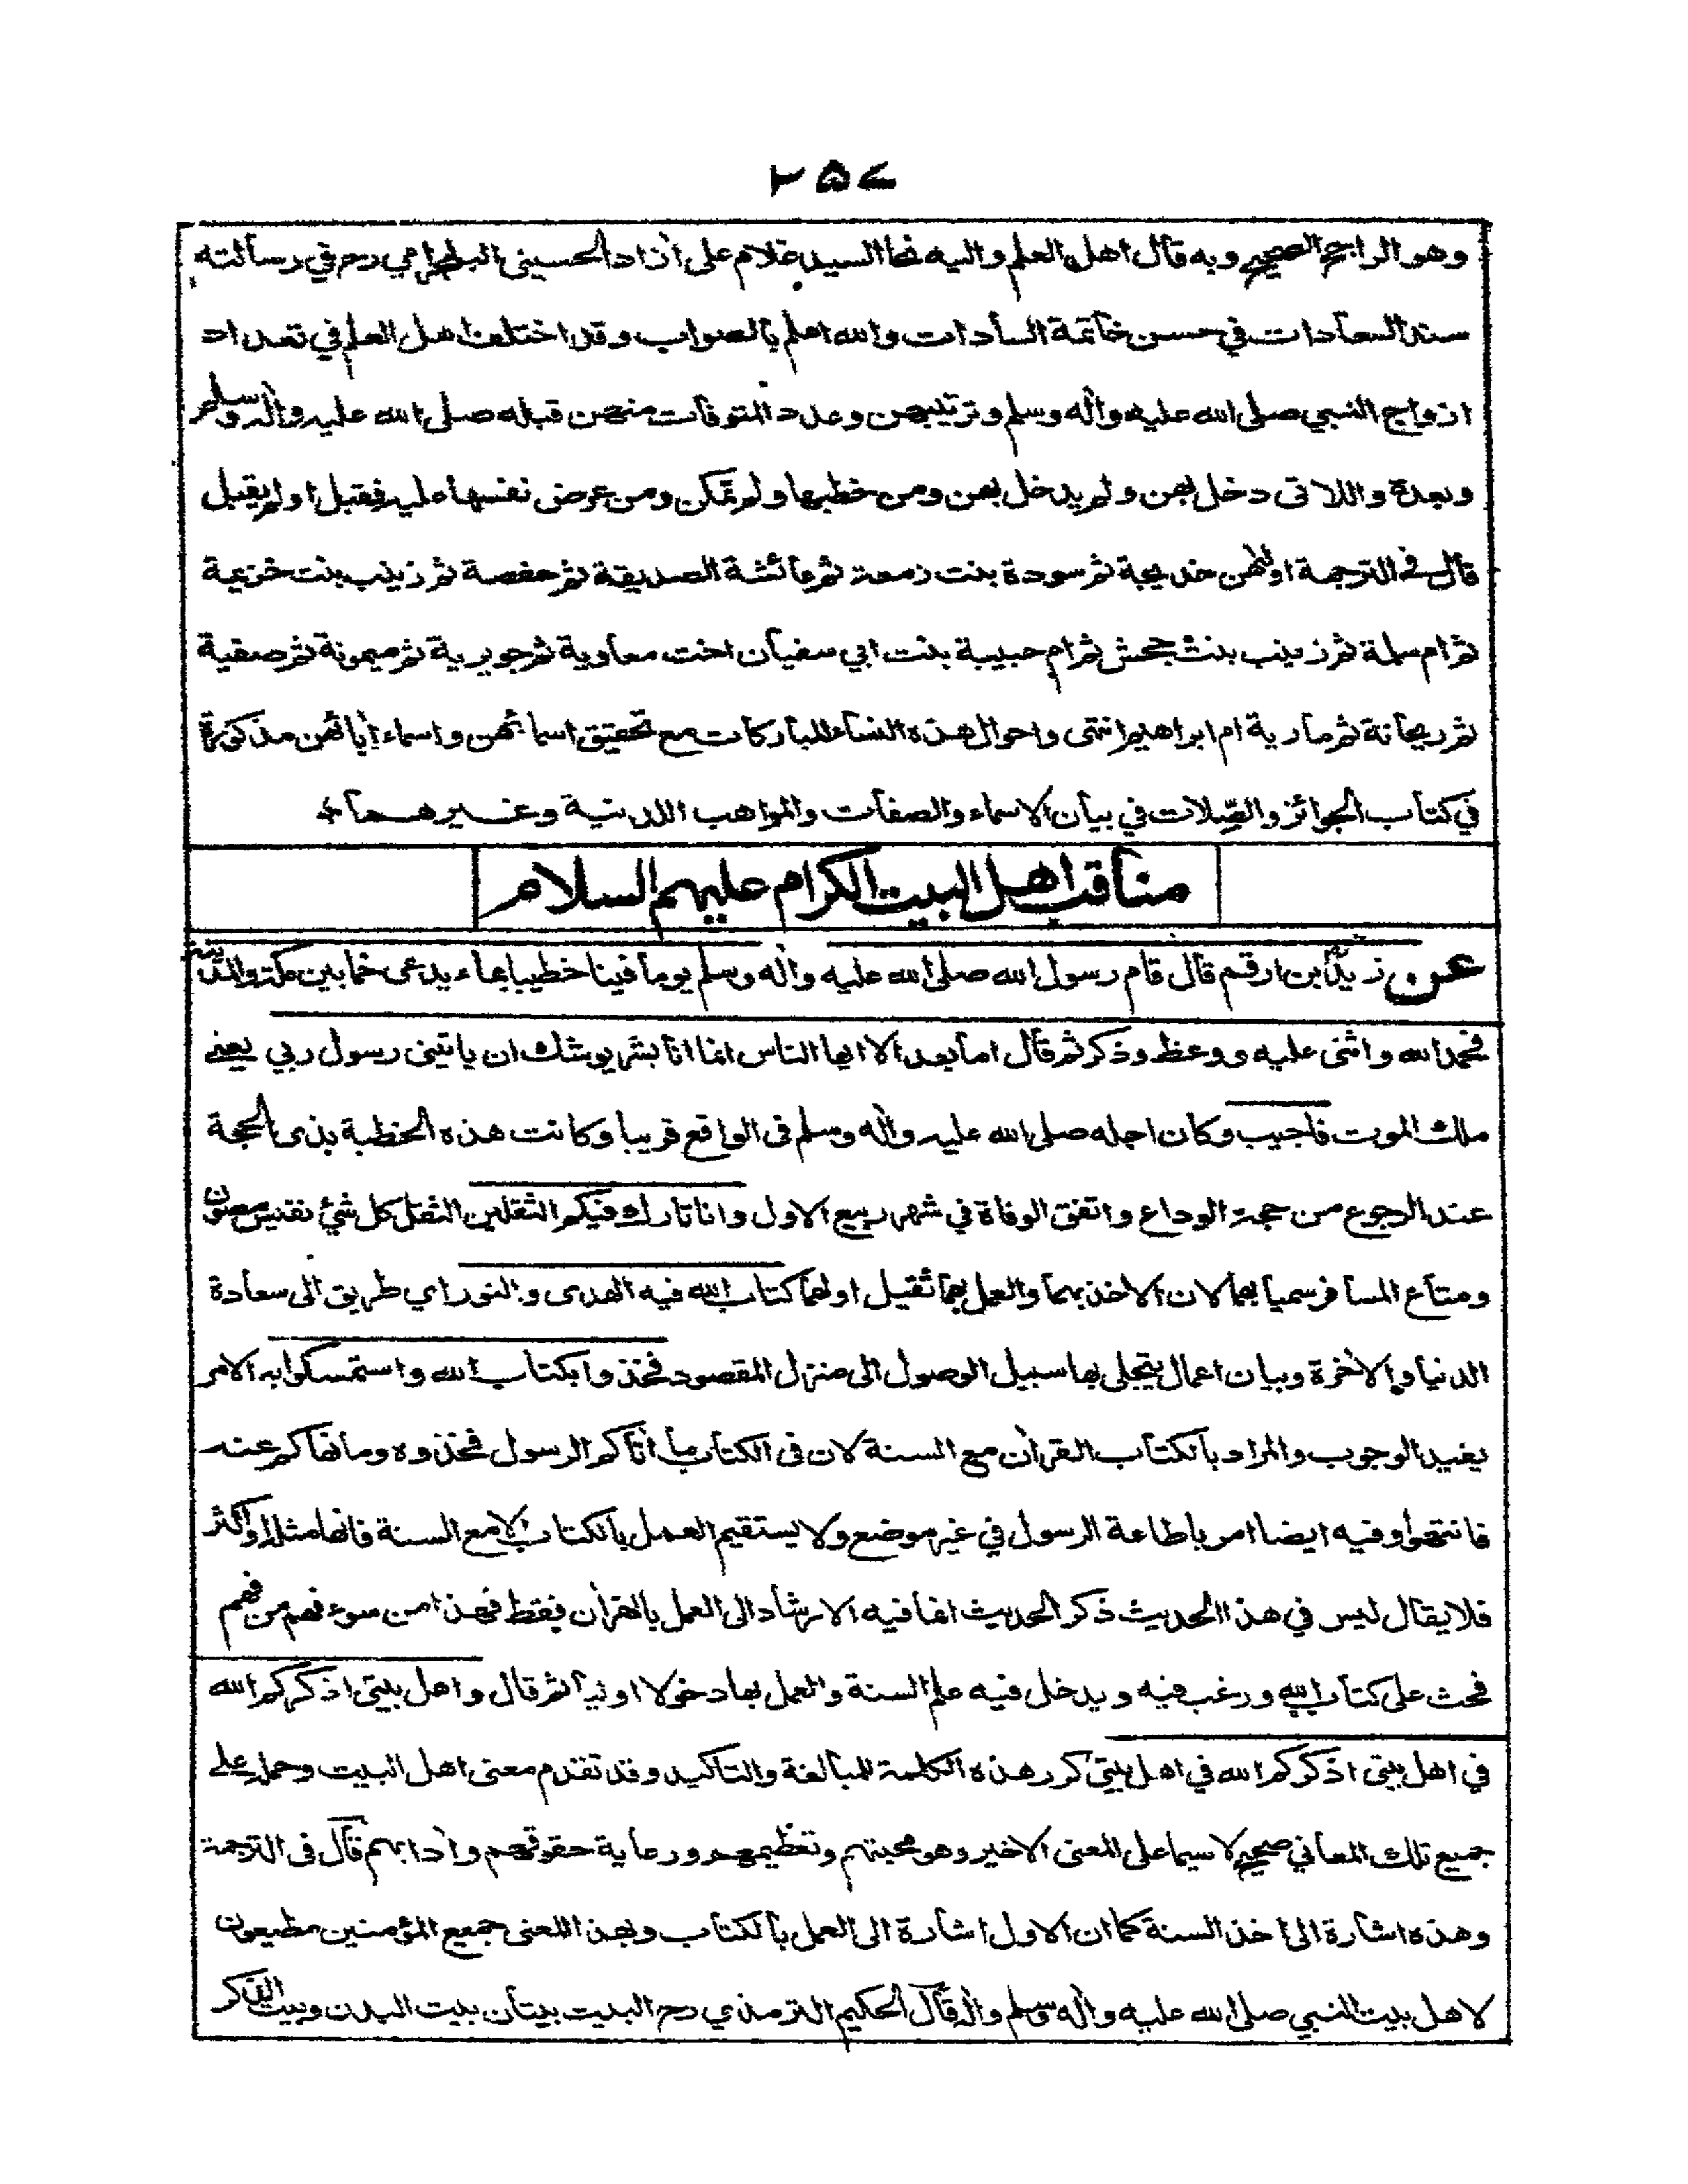 ٢٥٧
وهو الراجح الصحيح وبه قال اهل العلم واليه نحا السيد غلام على أزاد الحسينى البلجرامي رح في رسالته
سند السعادات في حسن خاتمة السادات والله اعلم بالصواب وقد اختلف اهل العلم في تعداد
ازواج النبي صلى الله عليه وأله وسلم وترتيبهن وعدد المتوفات منهن قبله صلى الله عليه وأله وسلم
وبعدة واللاتى دخل بهن ولم يدخل بهن ومن خطبها ولم تمكن ومن عرض نفسها عليه فقبل او لم يقبل
قال في الترجمة اولهن خديجة ثم سودة بنت زمعة ثم عائشة الصديقة ثم حفصة ثم زينب بنت خزيمة
ثم ام سلمة ثم زينب بنت جحش ثم ام حبيبة بنت ابي سفيان اخت معاوية ثم جويرية ثم ميمونة ثم صفية
ثم ريحانة ثم مارية ام ابراهيم انتهى واحوال هذه النساء المباركات مع تحقيق اسمائهن واسماء أبائهن مذكورة
في كتاب الجوائز والصِّلات في بيان الاسماء والصفات والمواهب اللدنية وغيرهما
مناقب اهل البيت الكرام عليهم السلام
عن زيد بن ارقم قال قام رسول الله صلى الله عليه وأله وسلم يوما فينا خطيبا بماء يدعى خما بين مكة والمدينة
فحمد الله واثنى عليه ووعظ وذكر ثم قال اما بعد الا ايها الناس انما انا بشر يوشك ان ياتينى رسول ربي يعنے
ملك الموت فاجيب وكان اجله صلى الله عليه وأله وسلم فى الواقع قريبا وكانت هذه الخطبة بذى الحجة
عند الرجوع من حجة الوداع واتفق الوفاة في شهر ربيع الاول وانا تارك فيكم الثقلين الثقل كل شئ نفيس مصون
ومتاع المسافر سميا بهما لان الاخذ بهما والعمل بهما ثقيل اولهما كتاب الله فيه الهدى والنور اي طريق الى سعادة
الدنيا والأخرة وبيان اعمال يتجلى بها سبيل الوصول الى منزل المقصود فخذوا بكتاب الله واستمسكوا به الامر
يفيد الوجوب والمراد بالكتاب القرأن مع السنة لان فى الكتاب ما أتاكم الرسول فخذوه وما نهاكم عنه
فانتهوا وفيه ايضا امر باطاعة الرسول في غير موضع ولا يستقيم العمل بالكتاب الا مع السنة فانها مثله او اكثر
فلا يقال ليس في هذا الحديث ذكر الحديث انما فيه الارشاد الى العمل بالقرأن فقط فهذا من سوء فهم من فهم
فحث على كتاب الله ورغب فيه ويدخل فيه علم السنة والعمل بها دخولا اوليا ثم قال واهل بيتى اذكركم الله
في اهل بيتى اذكركم الله في اهل بيتى كرر هذه الكلمة للمبالغة والتاكيد وقد تقدم معنى اهل البيت وحمله على
جميع تلك المعاني صحيح لا سيما على المعنى الاخير وهو محبتهم وتعظيمهم ورعاية حقوقهم وأدابهم قال فى الترجمة
وهذه اشارة الى اخذ السنة كما ان الاول اشارة الى العمل بالكتاب وبهذا المعنى جميع المؤمنين مطيعون
لاهل بيت النبي صلى الله عليه وأله وسلم قال الحكيم الترمذي رح البيت بيتان بيت البدن وبيت الذكر